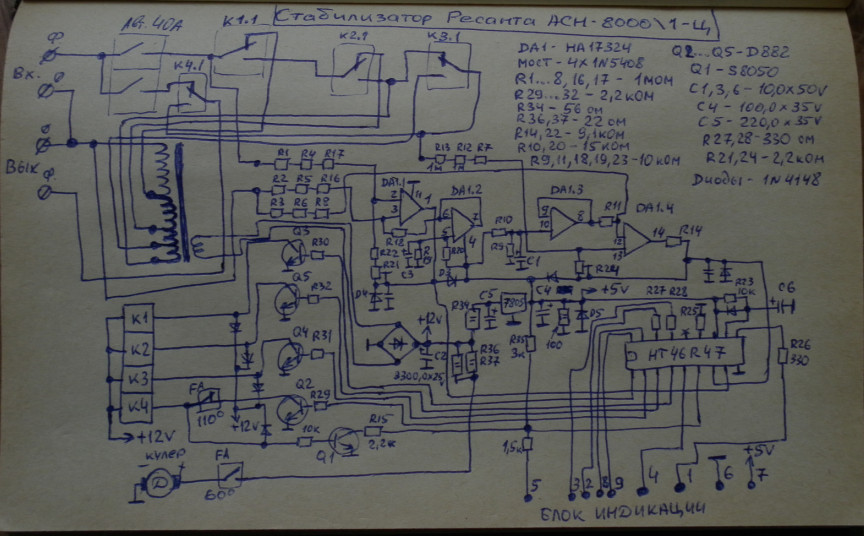 Стабилизатор Ресанта АСН-8000\1-Ц
Авт. 40А
К1.1
К2.1
К3.1
К4.1
Ф
Вх.
Ф
Ф
Вых
Ф
DA1 - HA17324
мост - 4x1N5408
R1...8, 16, 17 - 1мом
R29...32 - 2,2ком
R34 - 56 ом
R36,37 - 22 ом
R14,22 - 9,1ком
R10,20 - 15ком
R9,11,18,19,23-10ком
Q2...Q5-D882
Q1 - S8050
C1,3,6 - 10,0x50v
C4 - 100,0x35v
C5 - 220,0x35v
R27,28-330 ом
R21,24 - 2,2ком
Диоды - 1N4148
R1 R4 R17
R2 R5 R16
R3 R6 R8
R13 R12 R7
1м 1м
DA1.1
2
3
4
1
DA1.2
6
5
7
DA1.3
9
10
8
R11
DA1.4
12
13
14
R14
R10
R9
C1
R22
R21
C3
R20
R24
Q3
R30
Q5
R32
Q4
R31
Q2
R29
R15
2,2к
10к
Q1
+12v
C2
2200,0x25
R34
C5
7805
C4
+5v
D5
100
R36
R37
R35
3к
1,5к
R27 R28
R25
R23
10к
C6
HT46R47
R26
330
К1
К2
К3
К4
FA
110°
+12V
12V
кулер
+
D
FA
60°
5
3 2 8 9
4
1
6
+5v
7
БЛОК ИНДИКАЦИИ